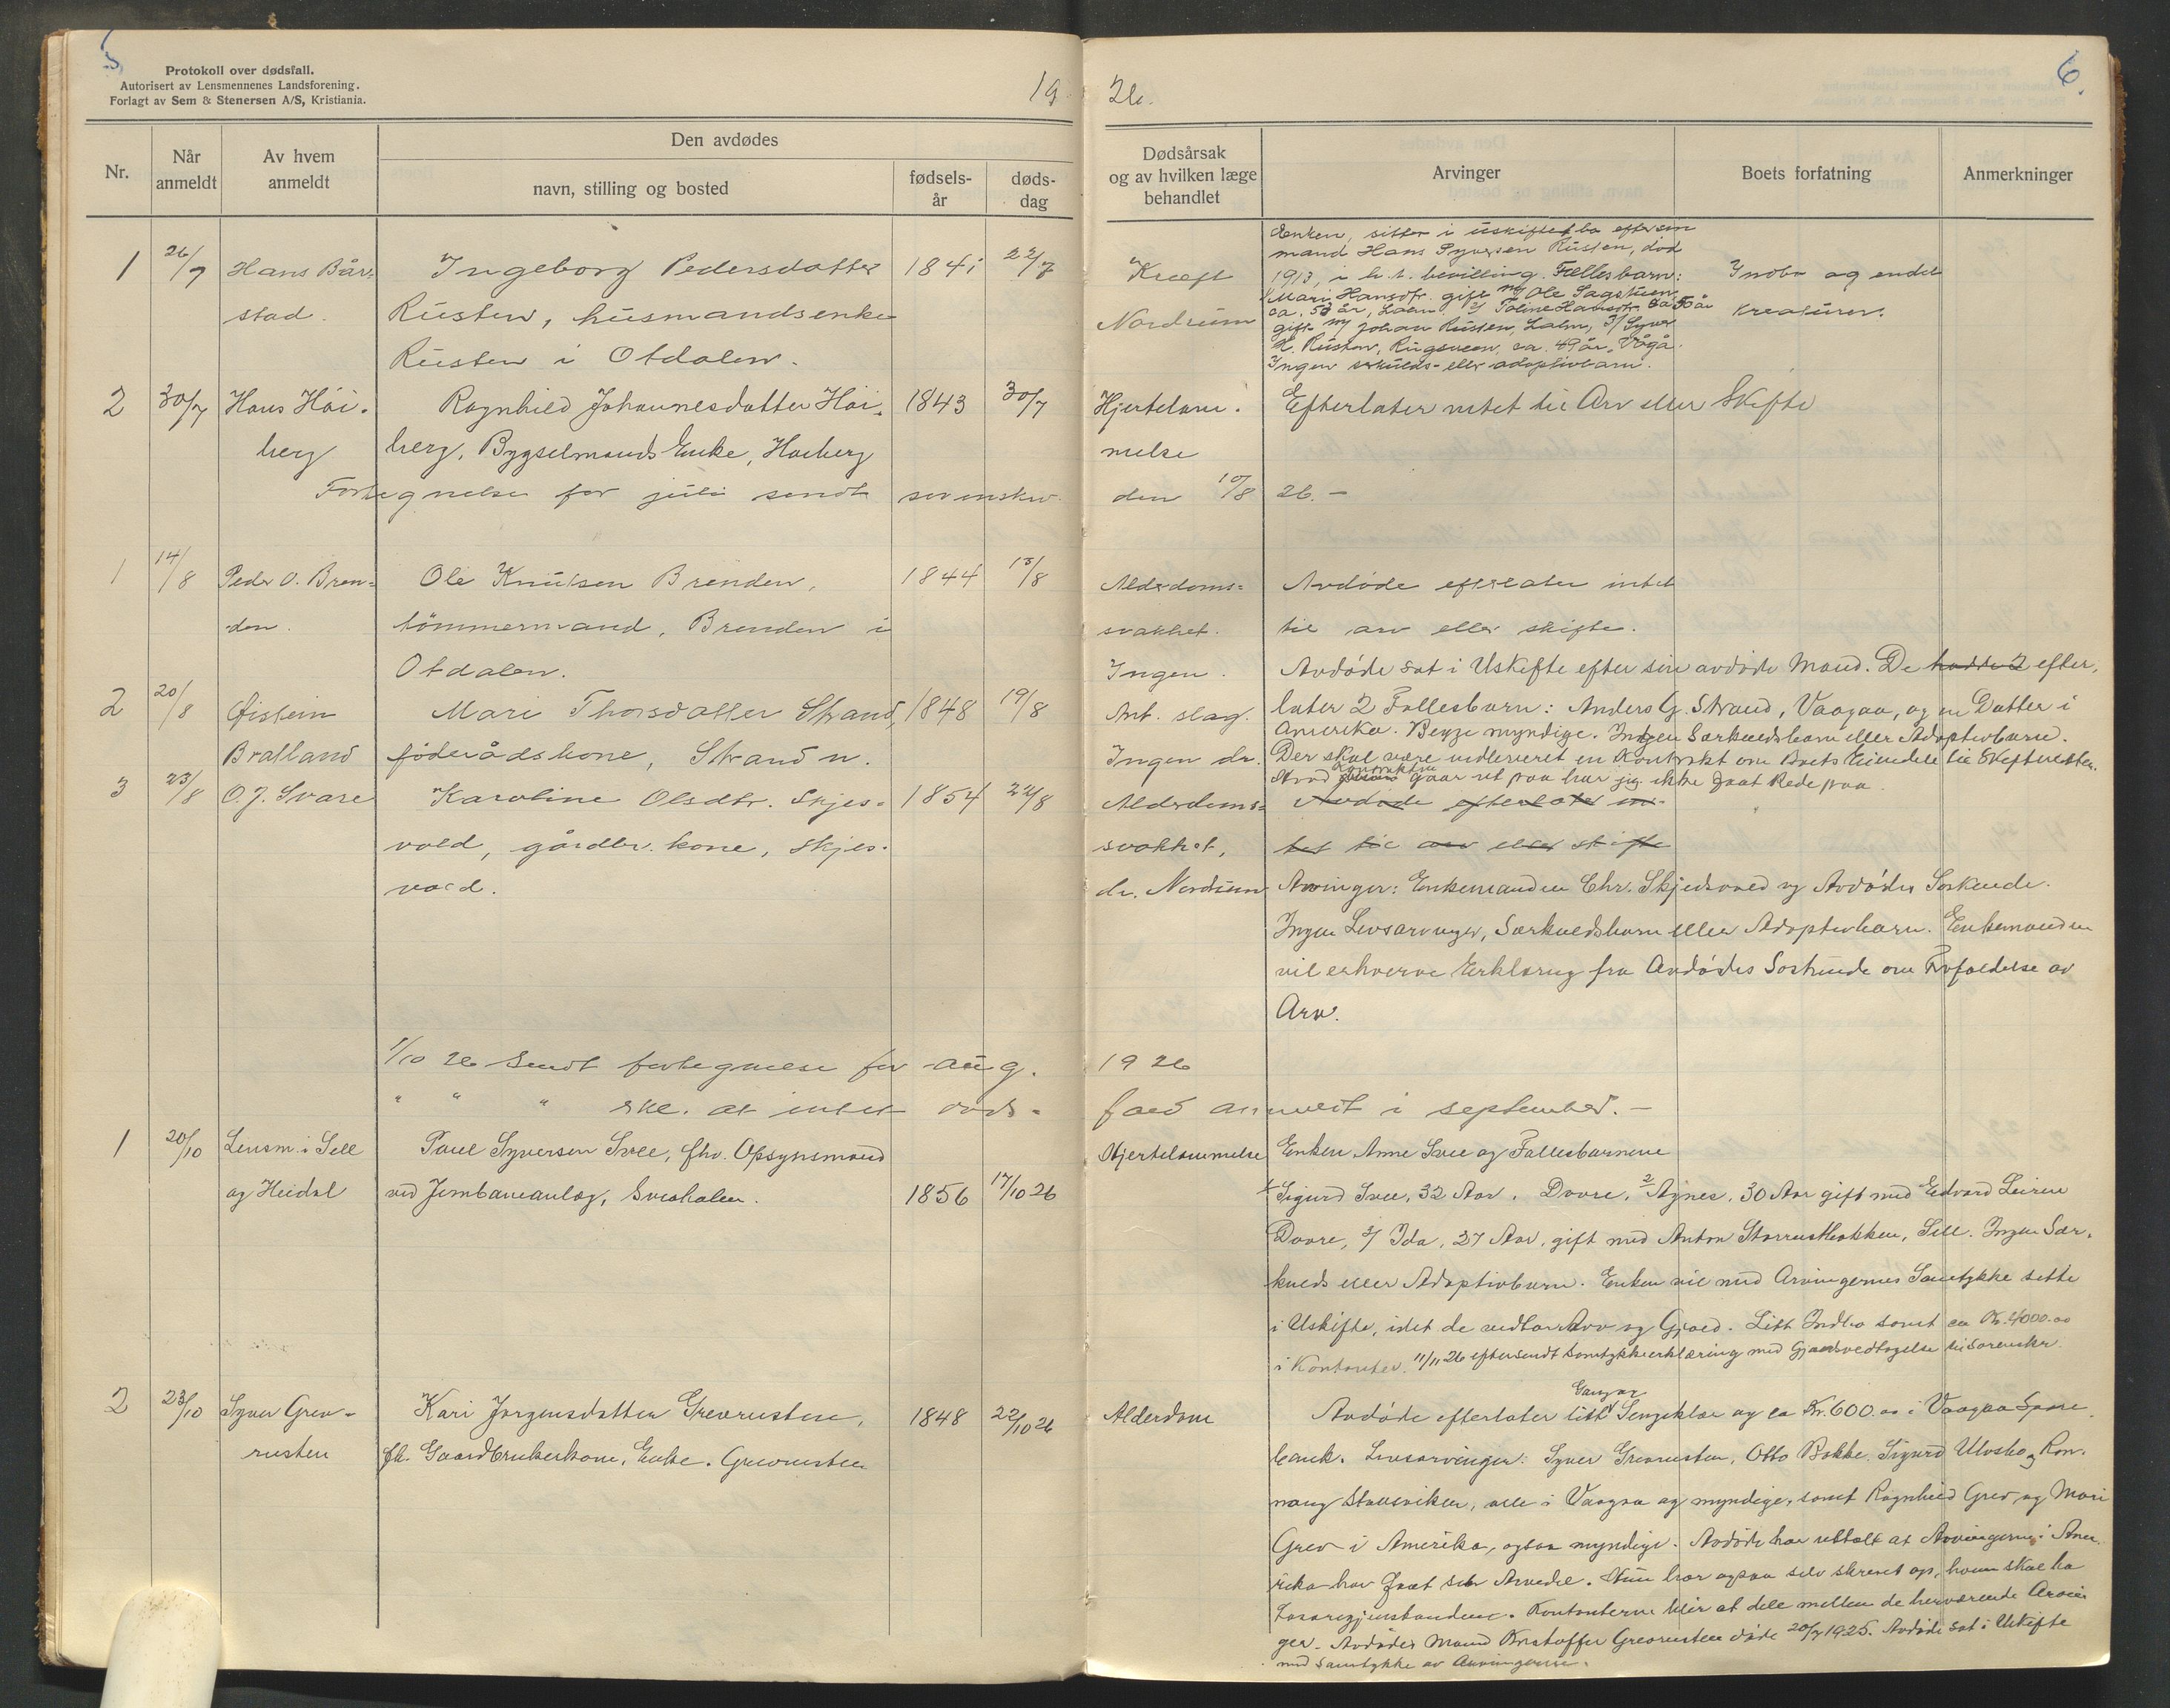 5
Protokoll over dødsfall.
Autorisert av Lensmennenes Landsforening.
Forlagt av Sem & Stenersen A/S, Kristiania.
19
Nr.
Når anmeldt
Av hvem anmeldt
Den avdødes
navn, stilling og bosted
fødsels-år
døds-dag
1 26/7 Hans Bår- Ingeborg Pedersdatter 1841 22/7
stad. Rusten, husmandsenke
Rusten i Otdalen.
2 30/7 Hans Høi- Ragnhild Johannesdatter Høi- 1843 30/7
berg berg, Bygselmands Enke, Høiberg
Fortegnelse for juli sendt sorenskr.
1 14/8 Peder O. Bren- Ole Knutsen Brenden, 1844 13/8
den. tømmermand, Brenden i
Otdalen.
2 20/8 Øistein Mari Thorsdatter Strand, 1848 19/8
Bratland føderådskone, Strand n.
3 23/8 O. J. Svare Karoline Olsdtr. Skjes- 1854 22/8
vold, gårdbr. kone, Skjes-
vold.
1/10 26 Sendt fortegnelse for aug.
" " " skr. at intet døds-
1 20/10 Lensm. i Sell Paul Syversen Svee, fhv. Opsynsmand
og Heidal ved Jernbaneanlæg, 1856 17/10 26
2 23/10 Syver Grev- Kari Jørgensdatter Grevrusten, 1848 22/10 26
rusten fh. Gaardbrukerkone, Enke. Grevrusten
26.
6.
Dødsårsak
og av hvilken læge
behandlet
Arvinger
Boets forfatning
Anmerkninger
Enken, sitter i uskiftet bo efter sin
mand Hans Syversen Rusten, død
Kræft 1913, i h. t. bevilling. Fællesbarn: Indbo og endel
1/ Mari Hansdtr. gift m/ Ole Sagstuen
Nordrum ca. 53 år, 2/ Toline Hansdtr. ca. 50 år kreaturer.
gift m/ Johan Rusten, Lalm, 3/ Syver
H. Rusten, ca. 49 år, Vågå.
Ingen særkulds- eller adoptivbarn.
Hjertelam- Efterlater intet til Arv eller Skifte
melse
den 10/8 26. -
Alderdoms- Avdøde efterlater intet
svakhet. til arv eller skifte.
Ingen. Avdøde sat i Uskifte efter sin avdøde Mand. De hadde 2 efter-
Ant. slag. later 2 Fællesbarn: Anders G. Strand, Vaagaa, og en Datter i
Amerika. Begge myndige. Ingen Særkuldsbarn eller Adoptivbarn.
Ingen dr. Der skal være indleveret en Kontrakt om Boets Eiendele til Skifteretten.
Hvad Kontrakten gaar ut paa har jeg ikke faat Rede paa.
Alderdoms- Avdøde efterlater in-
svakhet, tet til arv eller skifte
dr. Nordrum Arvinger: Enkemanden Chr. Skjedsvold og Avdødes Søskende.
Ingen Livsarvinger, Særkuldsbarn eller Adoptivbarn. Enkemanden
vil erhverve Erklæring fra Avdødes Søskende om Frafaldelse av
Arv.
1926
fald anmeldt i september. -
Hjertelammelse Enken Anne Svee og Fællesbarnene
1/ Sigurd Svee, 32 Aar. Dovre, 2/ Agnes, 30 Aar gift med Edvard Leiren
Dovre, 3/ Ida, 27 Aar, gift med Anton Storrusthokken, Sell. Ingen Sær-
kulds eller Adoptivbarn. Enken vil med Arvingernes Samtykke sitte
i Uskifte, idet de vedtar Arv og Gjæld. Litt Indbo samt ca Kr. 4000.00
i Kontanter. 11/11 26 eftersendt Samtykkeerklæring med Gjældsvedtagelse til Sorenskr.
Alderdom Avdøde efterlater litt Gangog Sengeklær og ca Kr. 600.00 i Vaagaa Spare-
bank. Livsarvinger: Syver Grevrusten, Otto Bakke, Sigurd Ulvsbo og Ron-
naug Stallsviken, alle i Vaagaa og myndige, samt Ragnhild Grev og Mari
Grev i Amerika, ogsaa myndige. Avdøde har uttalt at Arvingerne i Ame-
rika har faat sin Arvedel. Hun har ogsaa selv skrevet op, hvem skal ha
Løsøregjenstandene. Kontanterne blir at dele mellem de herværende Arvin-
ger. Avdødes Mand Kristoffer Grevrusten døde 20/7 1925. Avdøde sat i Uskifte
med Samtykke av Arvingerne.